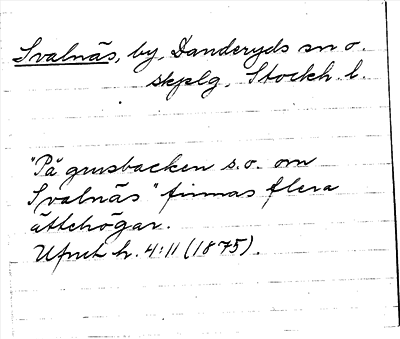 Svalnäs, by, Danderyds sn o.
skplg, Stockh. l.
"På grusbacken s.o. om
Svalnäs" finnas flera
ättehögar.
Ufnet h. 4:11 (1875).